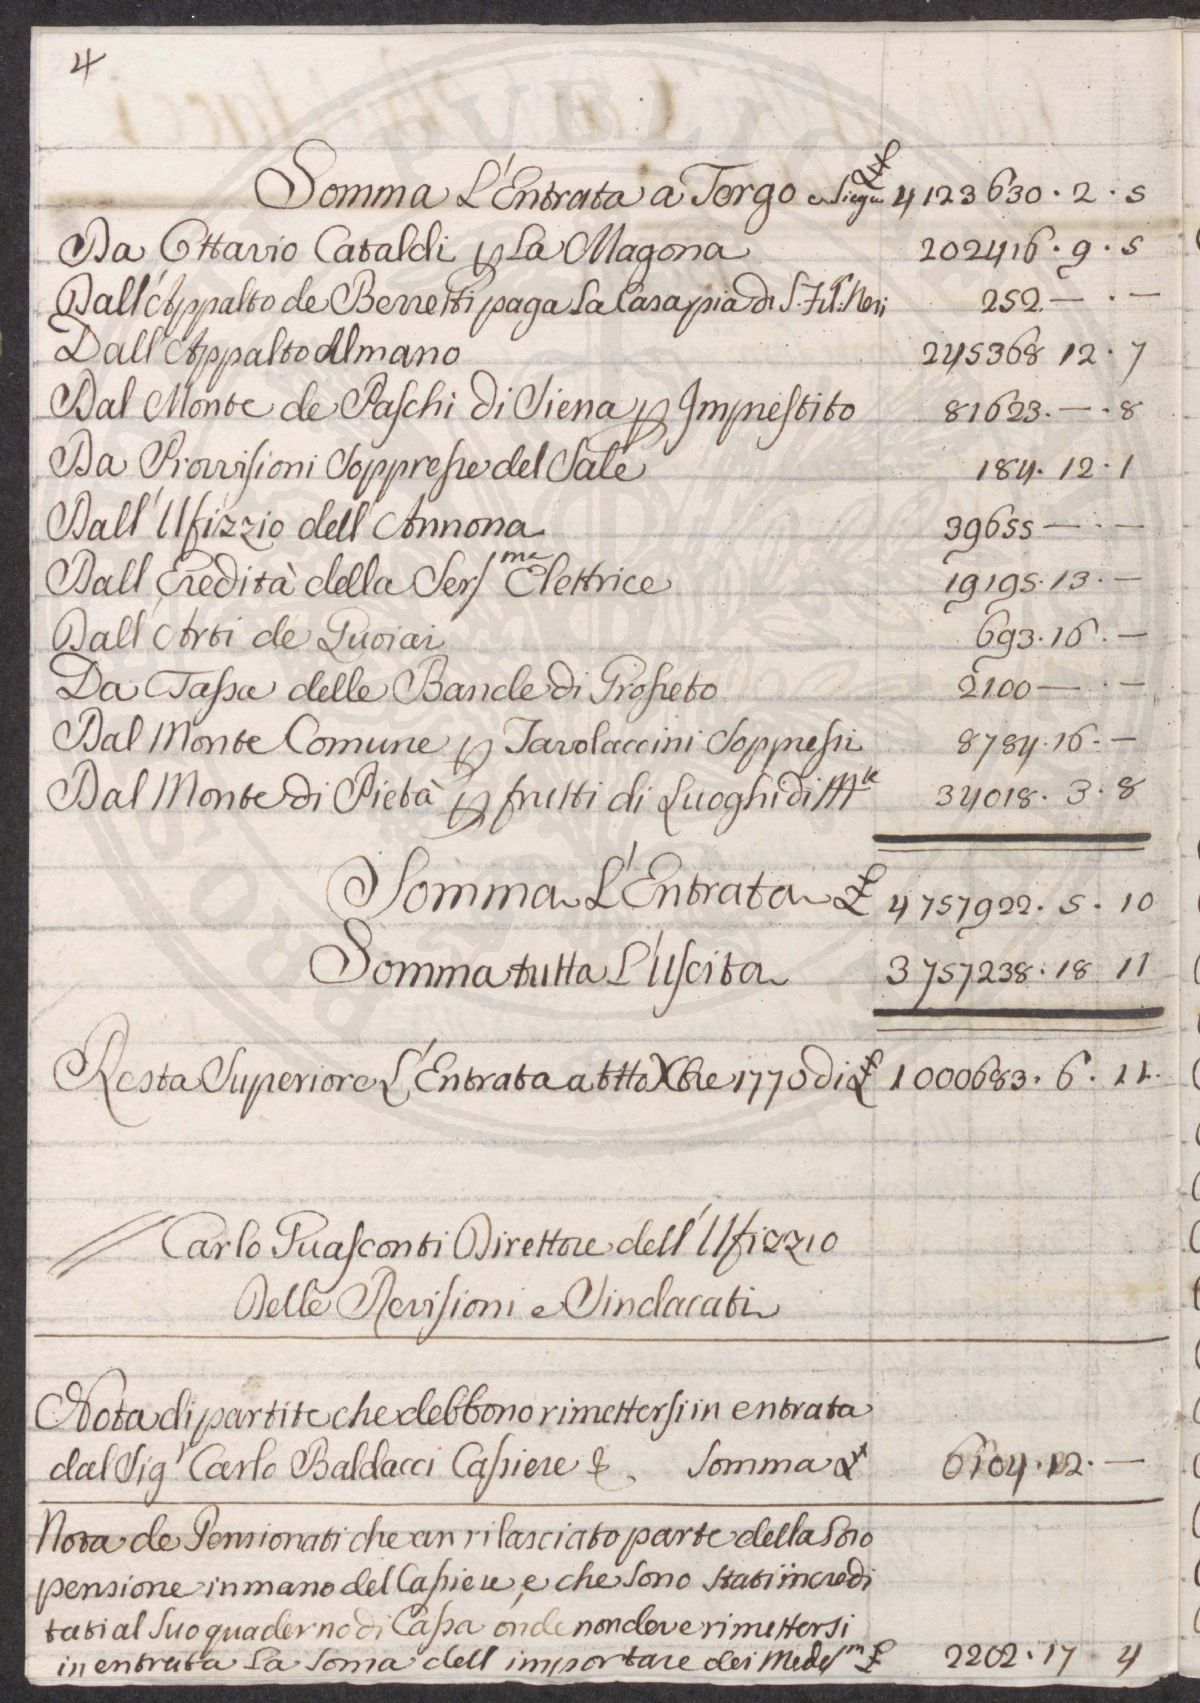 4
Somma L'Entrata a Tergo e Siegue £ 4123630 · 2 · 5
Da Ottavio Cataldi p La Magona 202416 · 9 · 5
Dall'Appalto de Berretti paga La Casa pia di S. Fil.º Neri 252 — · —
Dall'Appalto Almano 245368 12 · 7
Dal Monte de Paschi di Siena p Imprestito 81623 · — · 8
Da Provvisioni Soppresse del Sale 184 · 12 · 1
Dall'Ufizzio dell'Annona 39655 — · —
Dall'Eredità della Serma Elettrice 19195 · 13 · —
Dall'Arti de Quoiai 693 · 16 · —
Da Tassa delle Bande di Grosseto 2100 — · —
Dal Monte Comune p Tavolaccini Soppressi 8784 · 16 · —
Dal Monte di Pietà p frutti di Luoghi di Mte 34018 · 3 · 8
Somma L'Entrata £ 4757922 · 5 · 10
Somma tutta L'Uscita 3757238 · 18 11
Resta Superiore L'Entrata a ttto Xbre 1770 di £ 1000683 · 6 · 11
Carlo Guasconti Direttore dell'Ufizzio
Delle Revisioni e Sindacati
Nota di partite che debbono rimettersi in entrata
dal Sigr Carlo Baldacci Cassiere &. Somma £ 6104 · 12 · —
Nota de Pensionati che an rilasciato parte della Loro
pensione in mano del Cassiere, e che sono stati incredi
tati al Suo quaderno di Cassa onde non deve rimettersi
in entrata La Soma dell importare dei Medesm £ 2202 · 17 4
PUBLIC